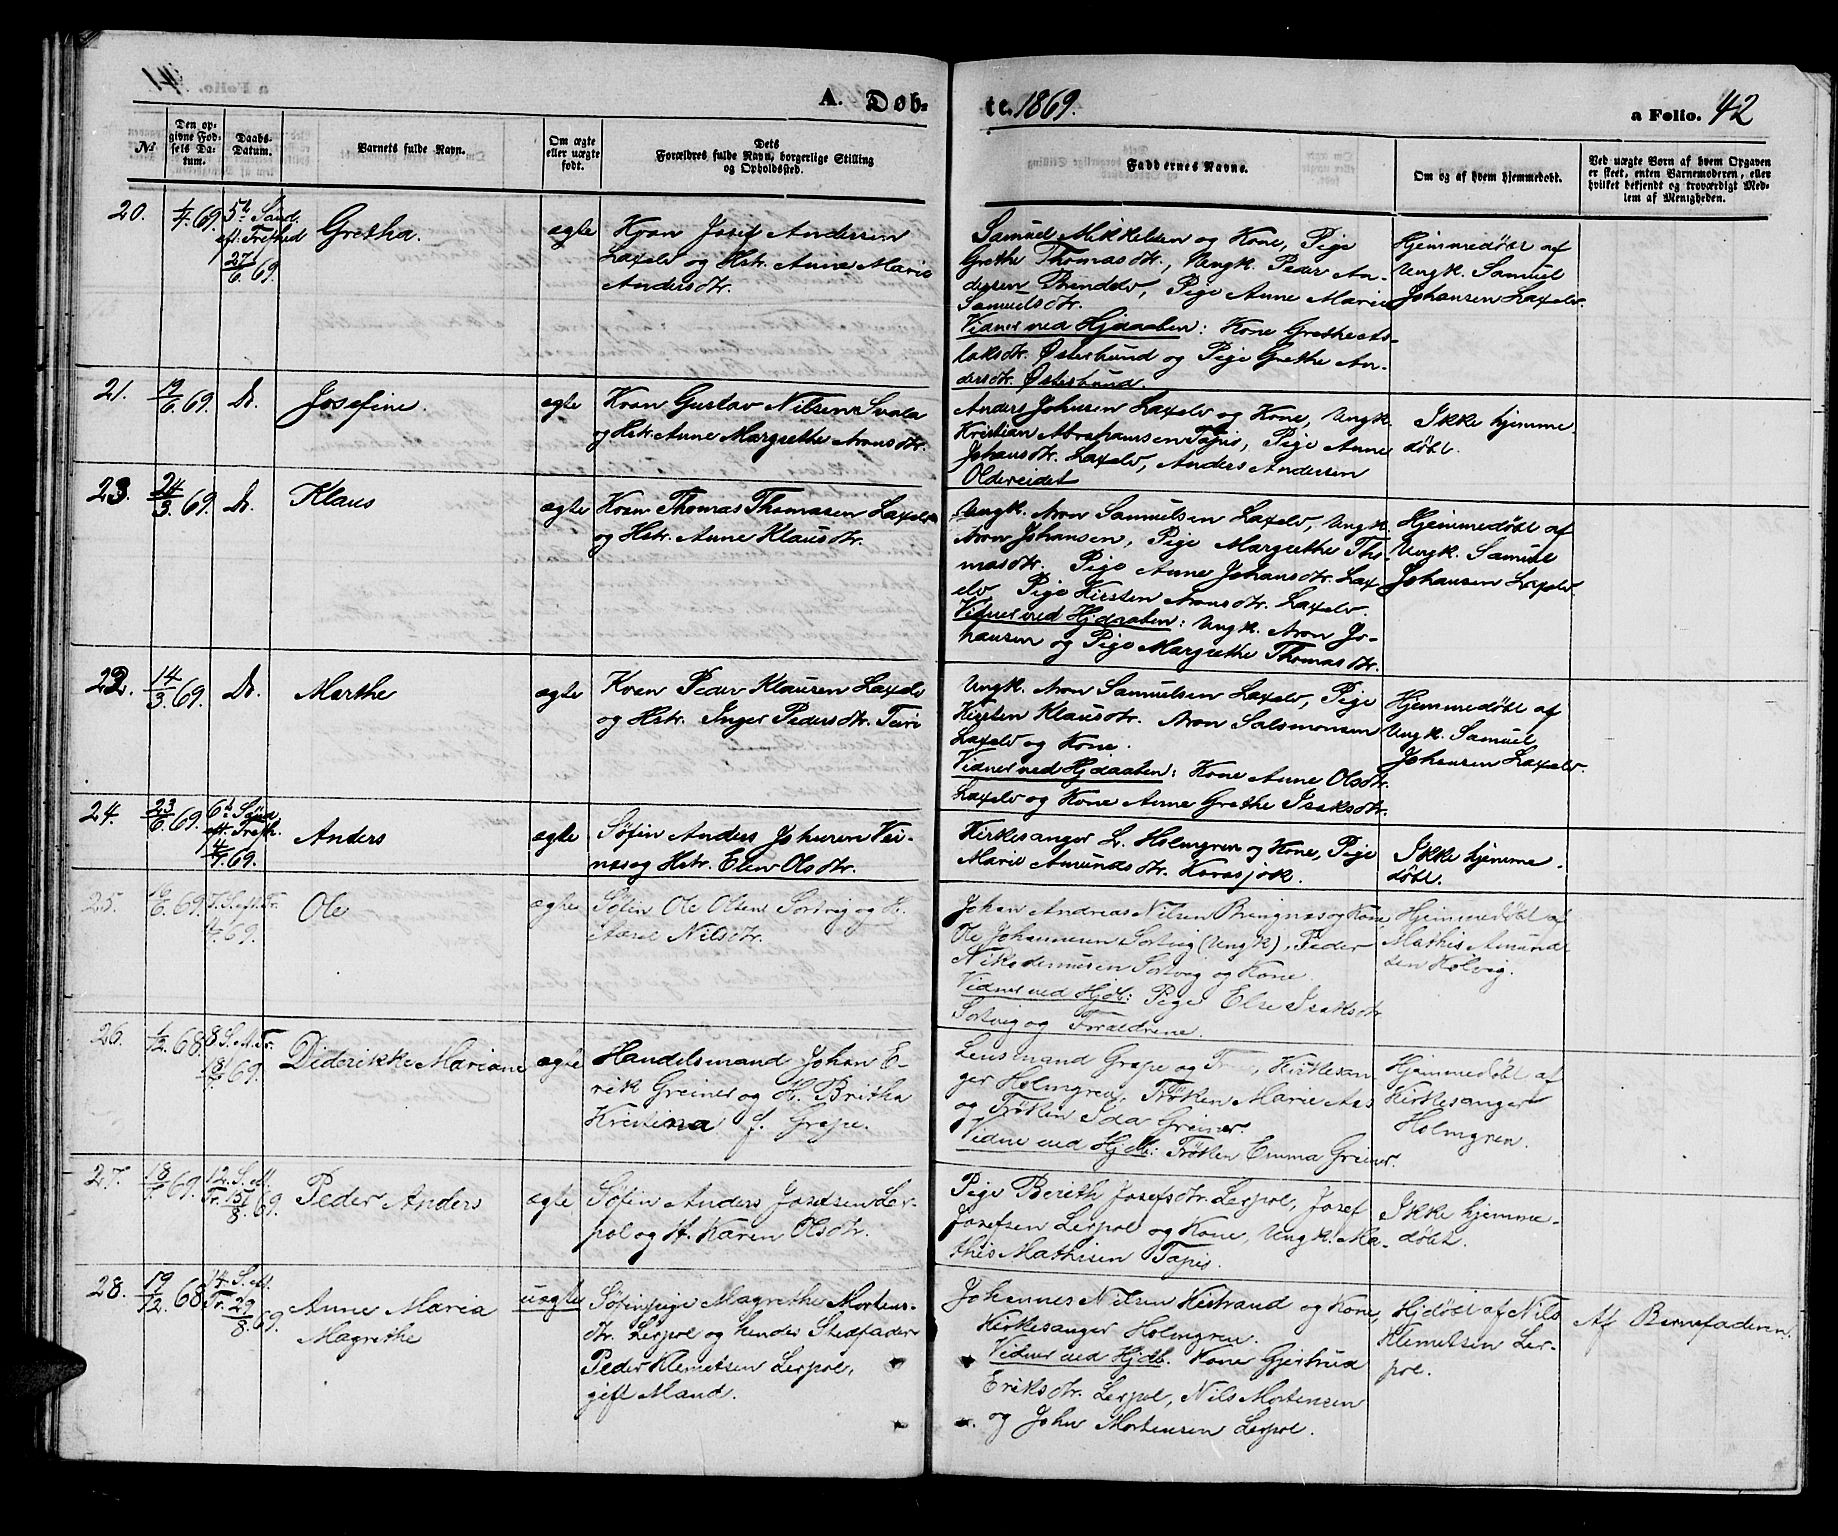 A. Døb-
te. 1869.
a Folio. 42
№
Den op-
givne Fød-
sels Da-
tum.
Daabs-
Datum.
Barnets fulde Navn.
Om ægte
eller uægte
født.
Dets
Forældres fulde Navn, borgerlige Stilling
og Opholdssted.
Faddernes Navne.
Om og af hvem hjemmedøbt.
Ved uægte Børn af hvem Opgaven
er skeet, enten Barnemoderen, eller
hvilket bekjendt og troværdigt Med-
lem af Menigheden.
20.
1/4 69.
5te Sönd.
eft. Trefhed
27/6 69.
Gretha.
ægte
Kvæn Josef Andersen
Laxelv og Hstr. Anne Marie
Andersdtr.
Samuel Mikkelsen og Kone, Pige
Grethe Thomasdtr., Ungk. Peder An-
dersen Brendelv, Pige Anne Marie
Samuelsdtr.
Vidner ved Hjdaaben: Kone Grethe As-
laksdtr. Østerbund og Pige Grethe An-
dersdtr. Østerbund.
Hjemmedøbt af
Ungk. Samuel
Johansen Laxelv.
21.
19/6 69.
Do.
Josefine.
ægte
Kvæn Gustav Nilsen Svala
og Hstr. Anne Margrethe Aronsdtr.
Anders Johnsen Laxelv og Kone, Ungk.
Kristian Abrahamsen Tapis, Pige Anne
Johansdtr. Laxelv, Anders Andersen
Oldereidet
Ikke hjemme-
døbt.
23.
24/3. 69.
Do.
Klaus
ægte
Kvæn Thomas Thomasen Laxelv
og Hstr. Anne Klausdtr.
Ungk. Aron Samuelsen Laxelv, Ungk.
Aron Johansen, Pige Margrethe Tho-
masdtr. Pige Anne Johansdtr. Lax-
elv Pige Kirsten Aronsdtr. Laxelv.
Vidner ved Hjdaaben: Ungk. Aron Jo-
hansen og Pige Margrethe Thomasdtr.
Hjemmedøbt af
Ungk. Samuel
Johansen Laxelv.
22.
14/3 69.
Do.
Marthe
ægte
Kvæn Peder Klausen Laxelv
og Hstr. Inger Pedersdtr. Teiri
Ungk. Aron Samuelsen Laxelv, Pige
Kirsten Klausdtr. Aron Salomonsen
Laxelv og Kone.
Vidner ved Hjdaaben: Kone Anne Olsdtr.
Laxelv og Kone Anne Grethe Isaksdtr.
Hjemmedøbt af
Ungk. Samuel
Johansen Laxelv.
24.
23/6. 69.
6te Sönd.
eft. Trefh.
4/7 69.
Anders
ægte
Søfin Anders Johnsen Vei-
næs og Hstr. Elen Olsdtr.
Kirkesanger L. Holmgren og Kone, Pige
Marie Amundsdtr. Karasjok.
Ikke hjemme-
døbt.
25.
69.
69.
Ole
ægte
Søfin Ole Olsen Sortvig og H.
Nilsdtr.
Johan Andreas Nilsen Bringnæs og Kone,
Ole Johannesen Sortvig (Ungk), Peder
Nikodemusen Sortvig og Kone
Vidner ved Hjdb: Pige Else Isaksdtr
Sortvig og Forældrene.
Hjemmedøbt af
Mathis Amund-
sen Kolvig.
26.
1/12. 68.
8 S. eft. Tr.
18/7 69.
Diderikke Mariane
ægte
Handelsmand Johan E-
rik Greiner og H. Britha
Kristina f. Grape.
Lensmand Grape og Kirkesan-
ger Holmgren, Frøken Marie Aas
og Frøken Ida Greiner.
Vidne ved Hjdb: Frøken Emma Greiner.
Hjemmedøbt af
Kirkesanger
Holmgren.
27.
18/7 69.
12. S. eft.
Tr. 15/8. 69.
Peder Anders
ægte
Søfin Anders Josefsen Ler-
pol og H. Karen Olsdtr.
Pige Berith Josefsdtr. Lerpol, Josef
Josefsen Lerpol og Kone, Ungk. Ma-
this Mathisen Tapis.
Ikke hjemme-
døbt.
28.
19/12. 68
14. S. eft.
Tr. 29/8. 69.
Anne Maria
Magrethe
uægte
Søfinpige Magrethe Mortens-
dtr. Lerpol og hendes Stedfader
Peder Klemetsen Lerpol,
gift Mand.
Johannes Nilsen Kistrand og Kone,
Kirkesanger Holmgren.
Vidner ved Hjdb. Kone Gjertrud
Eriksdtr. Lerpol, Nils Mortensen
og John Mortensen Lerpol.
Hjdøbt af Nils
Klemetsen Ler-
pol.
Af Barnefaderen.